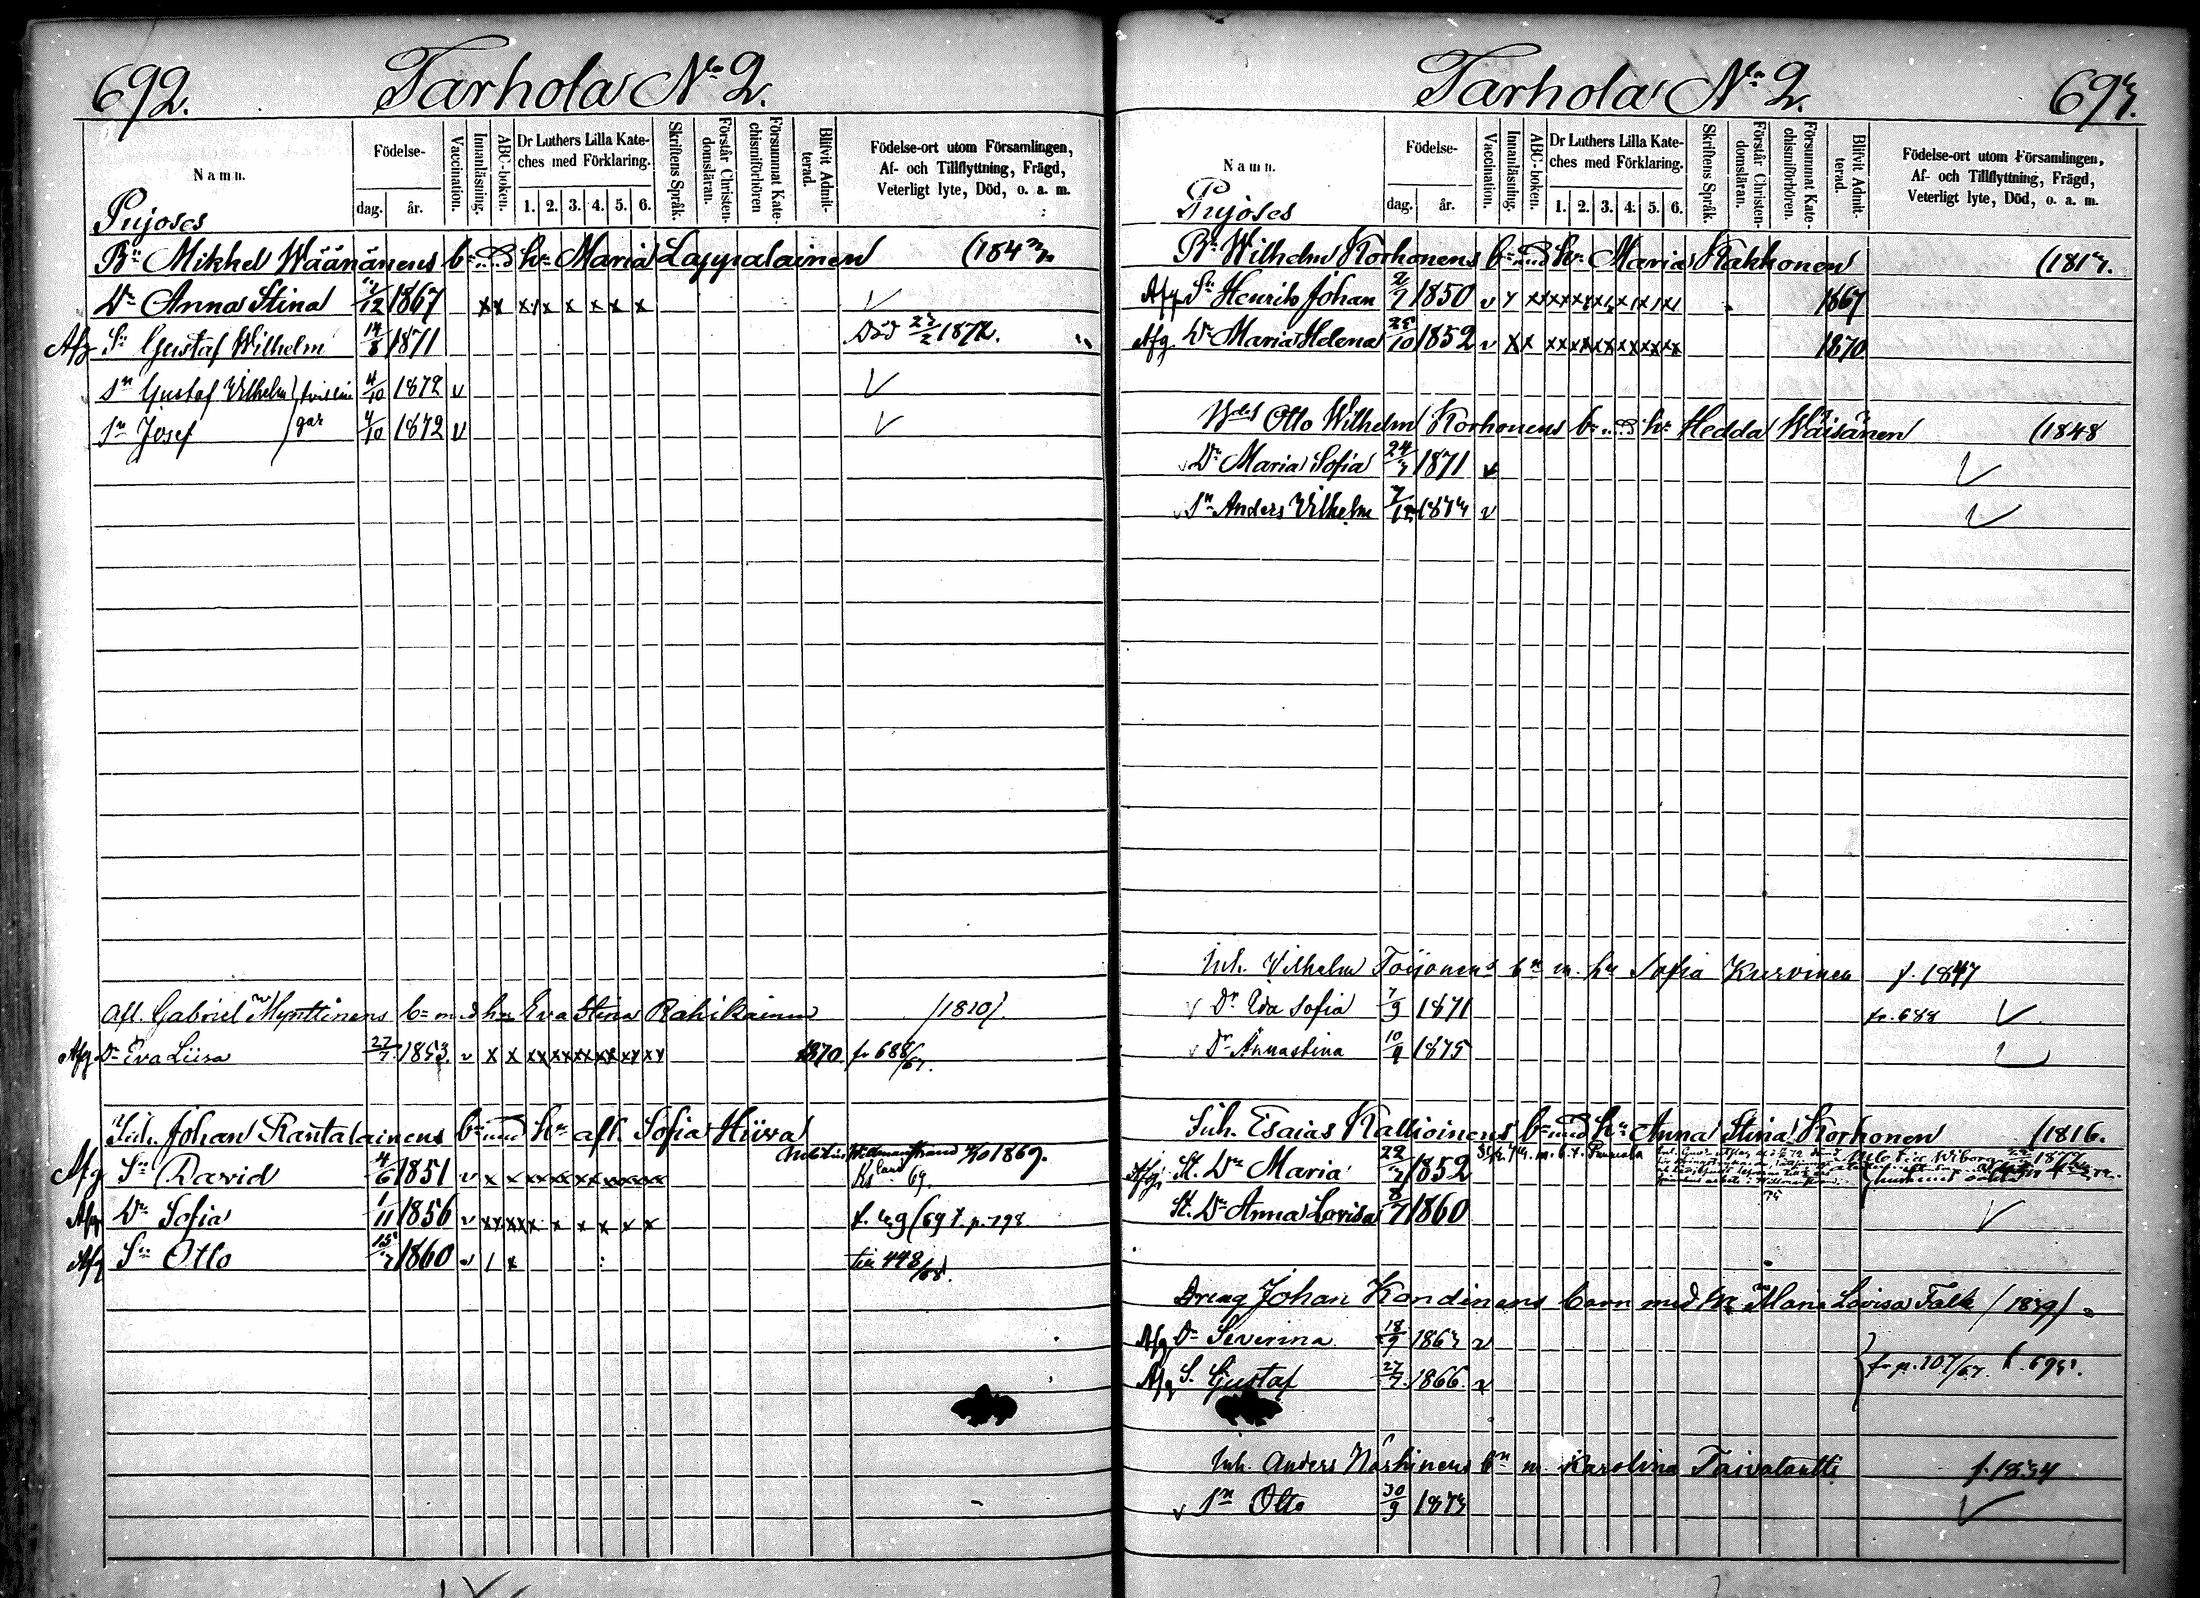 692.
Tarhola No 2.
Namn.
Födelse-
dag.
år.
Vaccination.
Innanläsning.
ABC-boken.
Dr Luthers Lilla Kate-
ches med Förklaring.
1. 2. 3. 4. 5. 6.
Skriftens Språk.
Förstår Christen-
domsläran.
Försummat Kate-
chismiförhören
Blifvit Admit-
terad.
Födelse-ort utom Församlingen,
Af- och Tillflyttning, Frägd,
Veterligt lyte, Död, o. a. m.
Pujoses
Bn Mikhel Wäänänens bn med hu Maria Lappalainen
Dr Anna Stina /12 1867 x x x x x x x x
Afg Sn Gustaf Wilhelm 14/8 1871 Död 1872.
Sn Gustaf Vilhelm 4/10 1872 v
Sn Josef 4/10 1872 v
Afl. Gabriel Mynttinens bn med hu Eva Stina Rahikainen (1810).
Afg Dr Eva Liisa 27/7 1853. v x x xx xx xx xx xx xx 1870. fr 688/67.
Inh. Johan Rantalainens bn med hn afl. Sofia Hiiva
Afg Sn David 4/6 1851 v x x xx xx xx xx xx 1869.
Afg Dr Sofia 1/11 1856 v xx xxx x x x x x
Afg Sn Otto 1860 v till 448/68.
Tarhola No 2.
693.
Namn.
Födelse-
dag.
år.
Vaccination.
Innanläsning.
ABC-boken.
Dr Luthers Lilla Kate-
ches med Förklaring.
1. 2. 3. 4. 5. 6.
Skriftens Språk.
Förstår Christen-
domsläran.
Försummat Kate-
chismiförhören.
Blifvit Admit-
terad.
Födelse-ort utom Församlingen,
Af- och Tillflyttning, Frägd,
Veterligt lyte, Död, o. a. m.
Pujoses
Bn Wilhelm Korhonens bn med hu Maria Kakkonen (1813.
Afg Sn Henrik Johan 1850 v 1867
Afg. Dr Maria Helena /10 1852 v xx 1870
Otto Wilhelm Korhonens bn med hu Hedda Wäisänen (1848
Dr Maria Sofia 24/3 1871 v
Sn Anders Vilhelm 7/12 1873 v
Inh. Vilhelm Toijonens bn m. hu Sofia Kurvinen f. 1847
Dr Ida Sofia 7/9 1871 fr. 688
Dr Annastina 10/9 1875
Inh. Esaias Kallioinens bn med hu Anna Stina Korhonen (1816.
Afg. St. Dr Maria 1852
St. Dr Anna Lovisa 8/7 1860
Dreng Johan Kondinens barn med hu Maria Lovisa Falk (1839)
Afg Dr Severina 18/9 1863 v
Afg S. Gustaf 27/7 1866. v fr p. 207/67.
Inh. Anders bn m. Karolina f. 1834
Sn Otto 30/9 1873